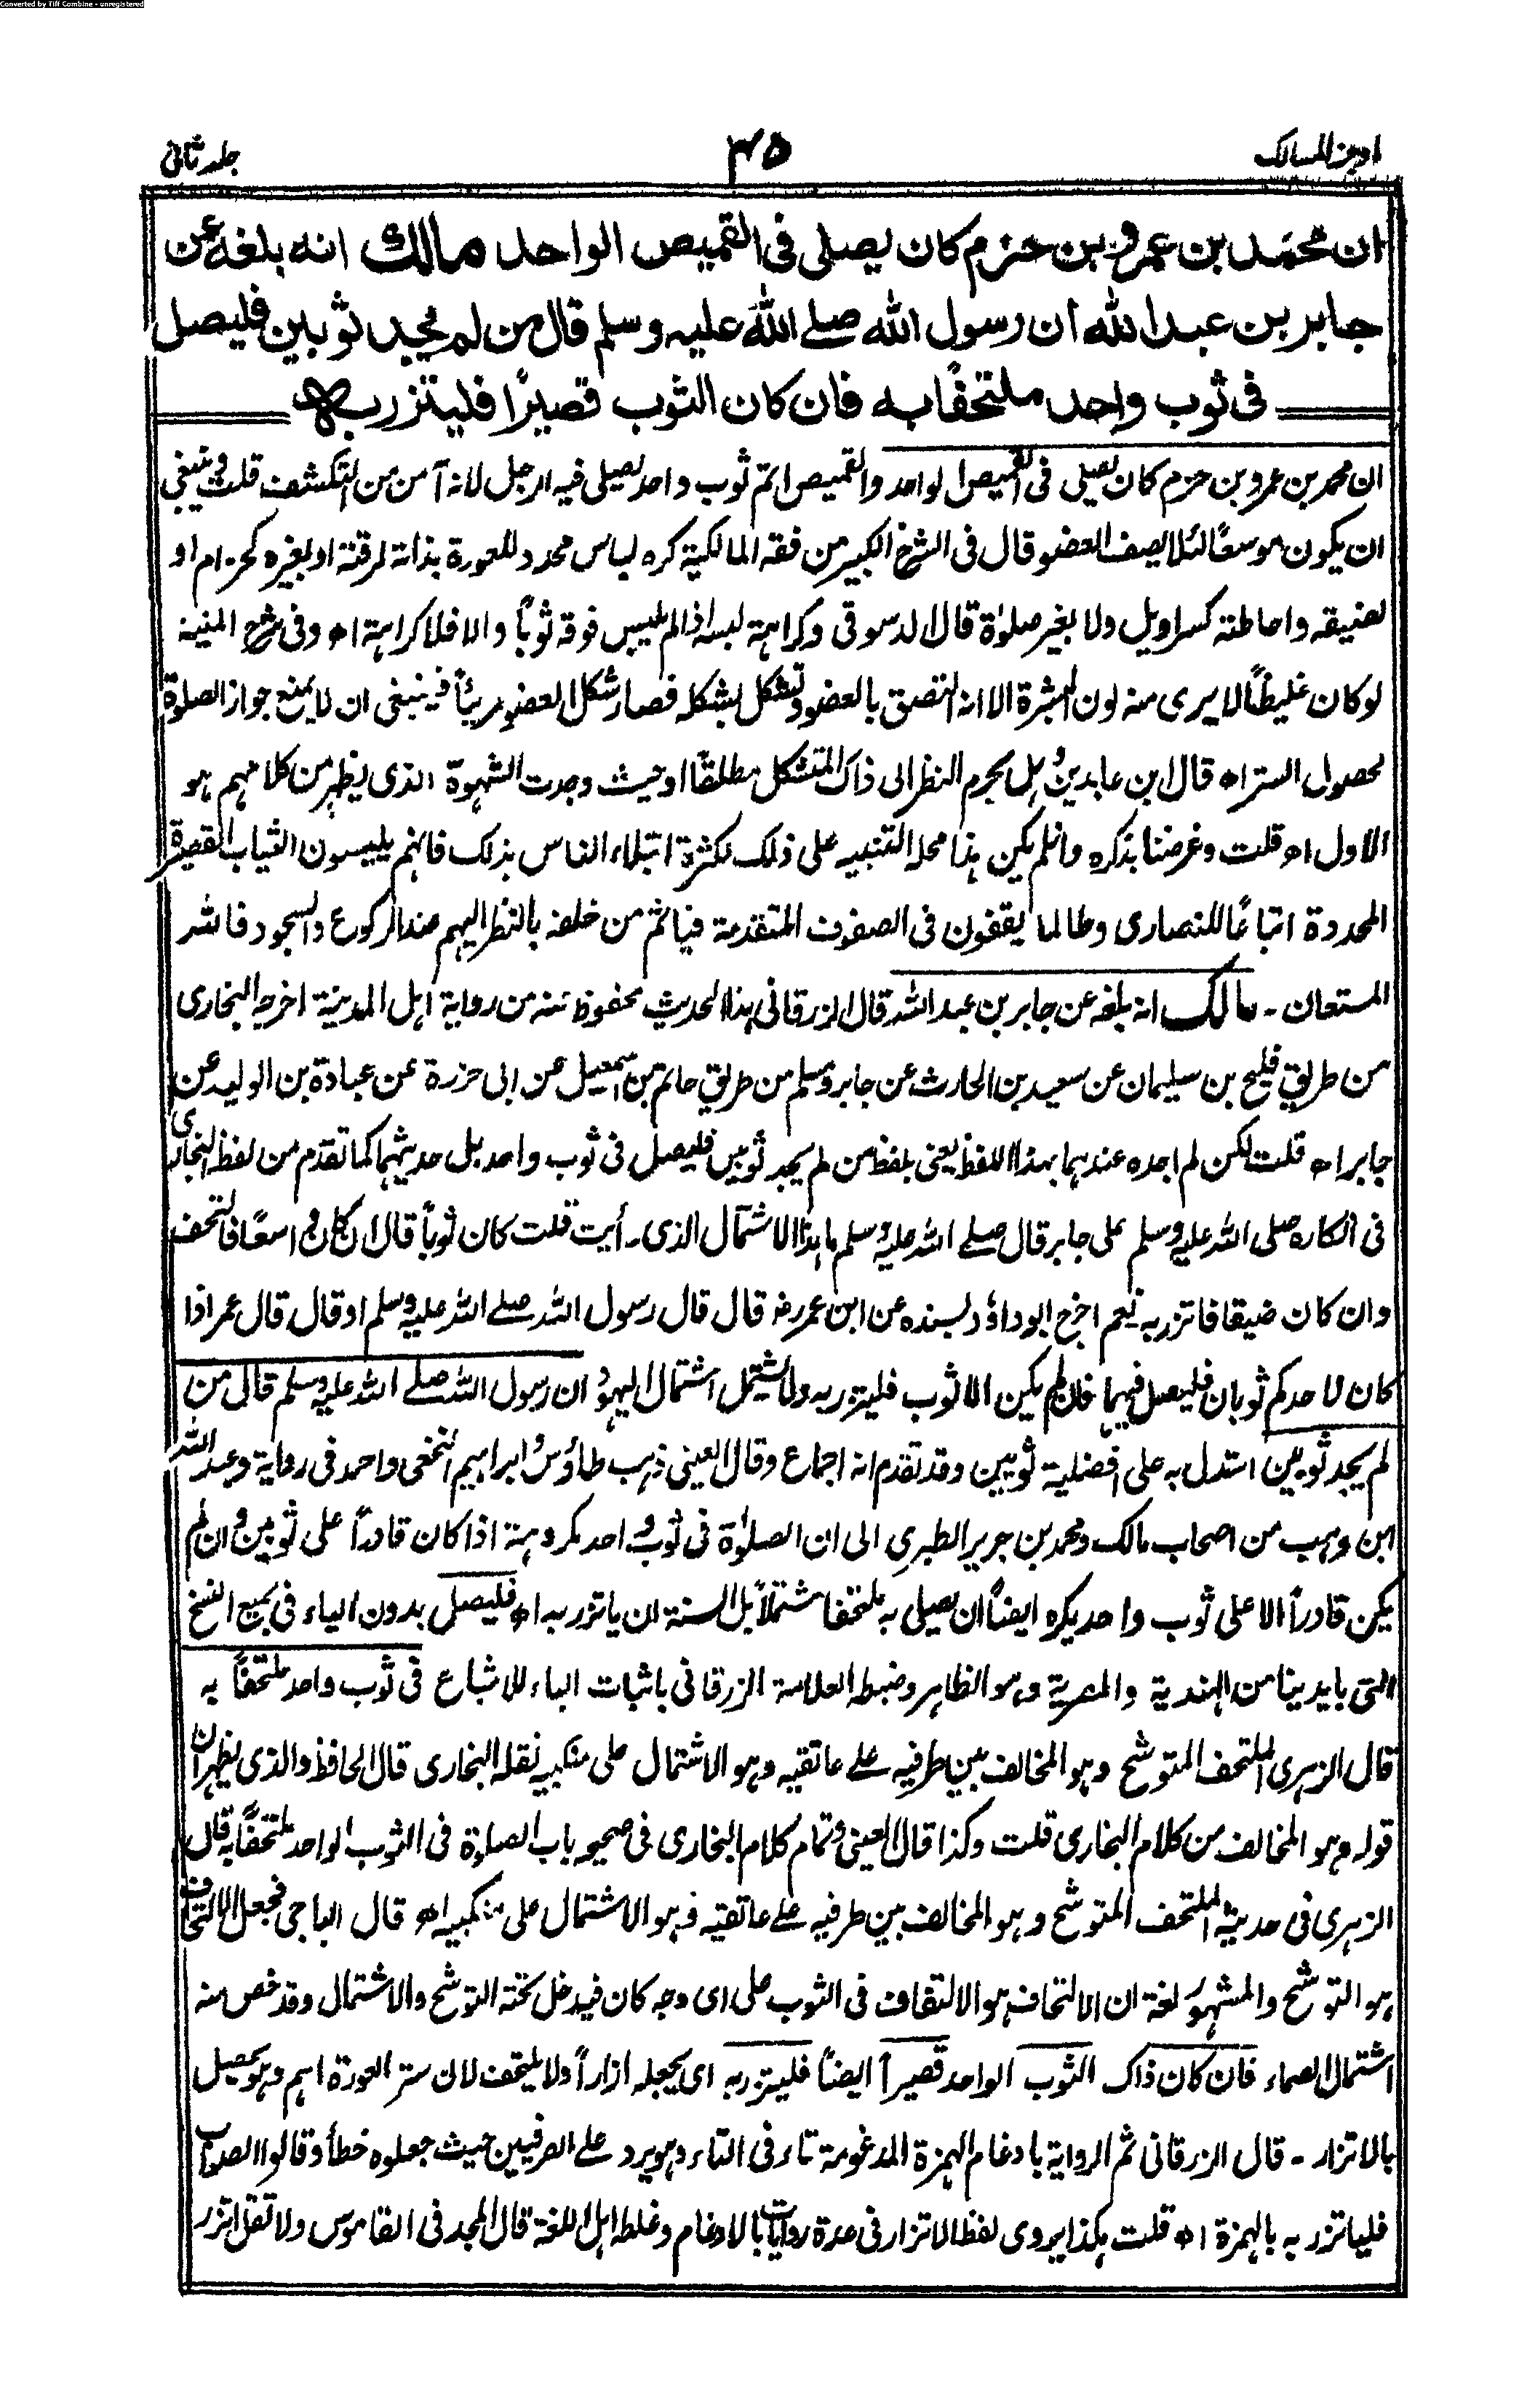 Converted by Tiff Combine - unregistered
اوجز المسالك
٣٥
جلد ثانی
ان محمد بن عمرو بن حزم كان يصلى فى القميص الواحد مالك انه بلغه عن
جابر بن عبد الله ان رسول الله صلے الله عليه وسلم قال من لم يجد ثوبين فليصل
فى ثوب واحد ملتحفًا به فان كان الثوب قصيرًا فليتزر به
ان محمد بن عمرو بن حزم كان يصلى فى القميص الواحد والقميص اتم ثوب واحد يصلى فيه الرجل لانه آمن من التكشف قلت وينبغى
ان يكون موسعًا لئلا يصف العضو قال فى الشرح الكبير من فقه المالكية كره لباس محدد للعورة بذاته لرقته او بغيره كحزام او
لضيقه واحاطته كسراويل ولا بغير صلوٰة قال الدسوقى وكراهة لبسه اذا لم يلبس فوقه ثوبًا والا فلا كراهة اھ وفى شرح المنية
لو كان غليظًا لا يرى منه لون البشرة الا انه التصق بالعضو وتشكل بشكله فصار شكل العضو مرئيًا فينبغى ان لا يمنع جواز الصلوة
لحصول الستر اھ قال ابن عابدين وهل يحرم النظر الى ذاك المتشكل مطلقًا او حيث وجدت الشهوة الذى يظهر من كلامهم هو
الاول اھ قلت وغرضنا بذكره وان لم يكن هذا محله التنبيه على ذلك لكثرة ابتلاء الناس بذلك فانهم يلبسون الثياب القصيرة
المحددة اتباعًا للنصارى وطالما يقفون فى الصفوف المتقدمة فيأثم من خلفه بالنظر اليهم عند الركوع والسجود فالله
المستعان ـ مالك انه بلغه عن جابر بن عبد الله قال الزرقانى هذا الحديث محفوظ عنه من رواية اهل المدينة اخرجه البخارى
من طريق فليح بن سليمان عن سعيد بن الحارث عن جابر ومسلم من طريق حاتم بن اسمعيل عن ابى حزرة عن عبادة بن الوليد عن
جابر اھ قلت لكن لم اجده عندهما بهذا اللفظ يعنى بلفظ من لم يجد ثوبين فليصل فى ثوب واحد بل حديثهما كما تقدم من لفظ البخارى
فى انكاره صلى الله عليه وسلم على جابر قال صلے الله عليه وسلم ما هذا الاشتمال الذى رأيت قلت كان ثوبًا قال ان كان واسعًا فالتحف
وان كان ضيقا فاتزر به نعم اخرج ابوداؤد بسنده عن ابن عمر رضـ قال قال رسول الله صلے الله عليه وسلم او قال قال عمر اذا
كان لاحدكم ثوبان فليصل فيهما فان لم يكن الا ثوب فليتزر به ولا يشتمل اشتمال اليهود ان رسول الله صلے الله عليه وسلم قال من
لم يجد ثوبين استدل به على افضلية ثوبين وقد تقدم انه اجماع وقال العينى ذهب طاؤس وابراهيم النخعى واحمد فى رواية وعبد الله
ابن وهب من اصحاب مالك ومحمد بن جرير الطبرى الى ان الصلوٰة فى ثوب واحد مكروهة اذا كان قادرًا على ثوبين وان لم
يكن قادرًا الا على ثوب واحد يكره ايضًا ان يصلى به ملتحفا مشتملًا بل السنة ان ياتزر به اھ فليصل بدون الياء فى جميع النسخ
التى بايدينا من الهندية والمصرية وهو الظاهر وضبطه العلامة الزرقانى باثبات الياء للاشباع فى ثوب واحد ملتحفًا به
قال الزهرى الملتحف المتوشح وهو المخالف بين طرفيه علے عاتقيه وهو الاشتمال على منكبيه نقله البخارى قال الحافظ والذى يظهر ان
قوله وهو المخالف من كلام البخارى قلت وكذا قال العينى وتمام كلام البخارى فى صحيحه باب الصلوة فى الثوب الواحد ملتحفًا به قال
الزهرى فى حديثه الملتحف المتوشح وهو المخالف بين طرفيه علے عاتقيه وهو الاشتمال على منكبيه اھ قال الباجى فجعل الالتحاف
هو التوشح والمشهور لغة ان الالتحاف هو الالتفاف فى الثوب على اى وجه كان فيدخل تحته التوشح والاشتمال وقد خص منه
اشتمال الصماء فان كان ذاك الثوب الواحد قصيرًا ايضًا فليتزر به اى يجعله ازارًا ولا يلتحف لان ستر العورة اهم وهو يحصل
بالاتزار ـ قال الزرقانى ثم الرواية بادغام الهمزة المدغومة تاء فى التاء وهو يرد علے الصرفيين حيث جعلوه خطأ وقالوا الصواب
فلياتزر به بالهمزة اھ قلت هكذا يروى لفظ الاتزار فى عدة روايات بالادغام وغلطه اهل اللغة قال المجد فى القاموس ولا تقل اتزر